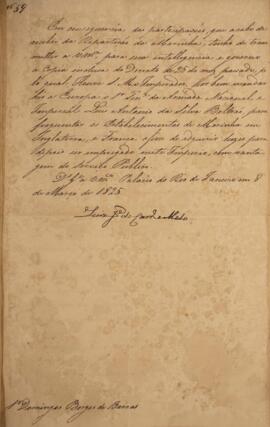 Nº 59
Em consequencia da participação, que acabo de
receber da Repartição da Marinha, tenho de trans
mittir a V.Mce para sua intelligencia e governo
a Copia inclusa do Decreto de 25 do mez passado, pe
lo qual Houve S. M. o Imperador, por bem mandar
para a Europa o 1º Tene. da Armada Nacional e
Imperial Luiz Antonio da Silva Beltrão, para
frequentar os Estabelecimentos de Marinha em
Inglaterra, e França afim de adquirir luzes para
depois ser empregado neste Imperio, com vanta
gem do Serviço Publico.
D.s G.e a V.Mce Palacio do Rio de Janeiro em 8
de Março de 1825
Luiz Je. de Carvo. e Mello.
Sr. Domingos Borges de Barros